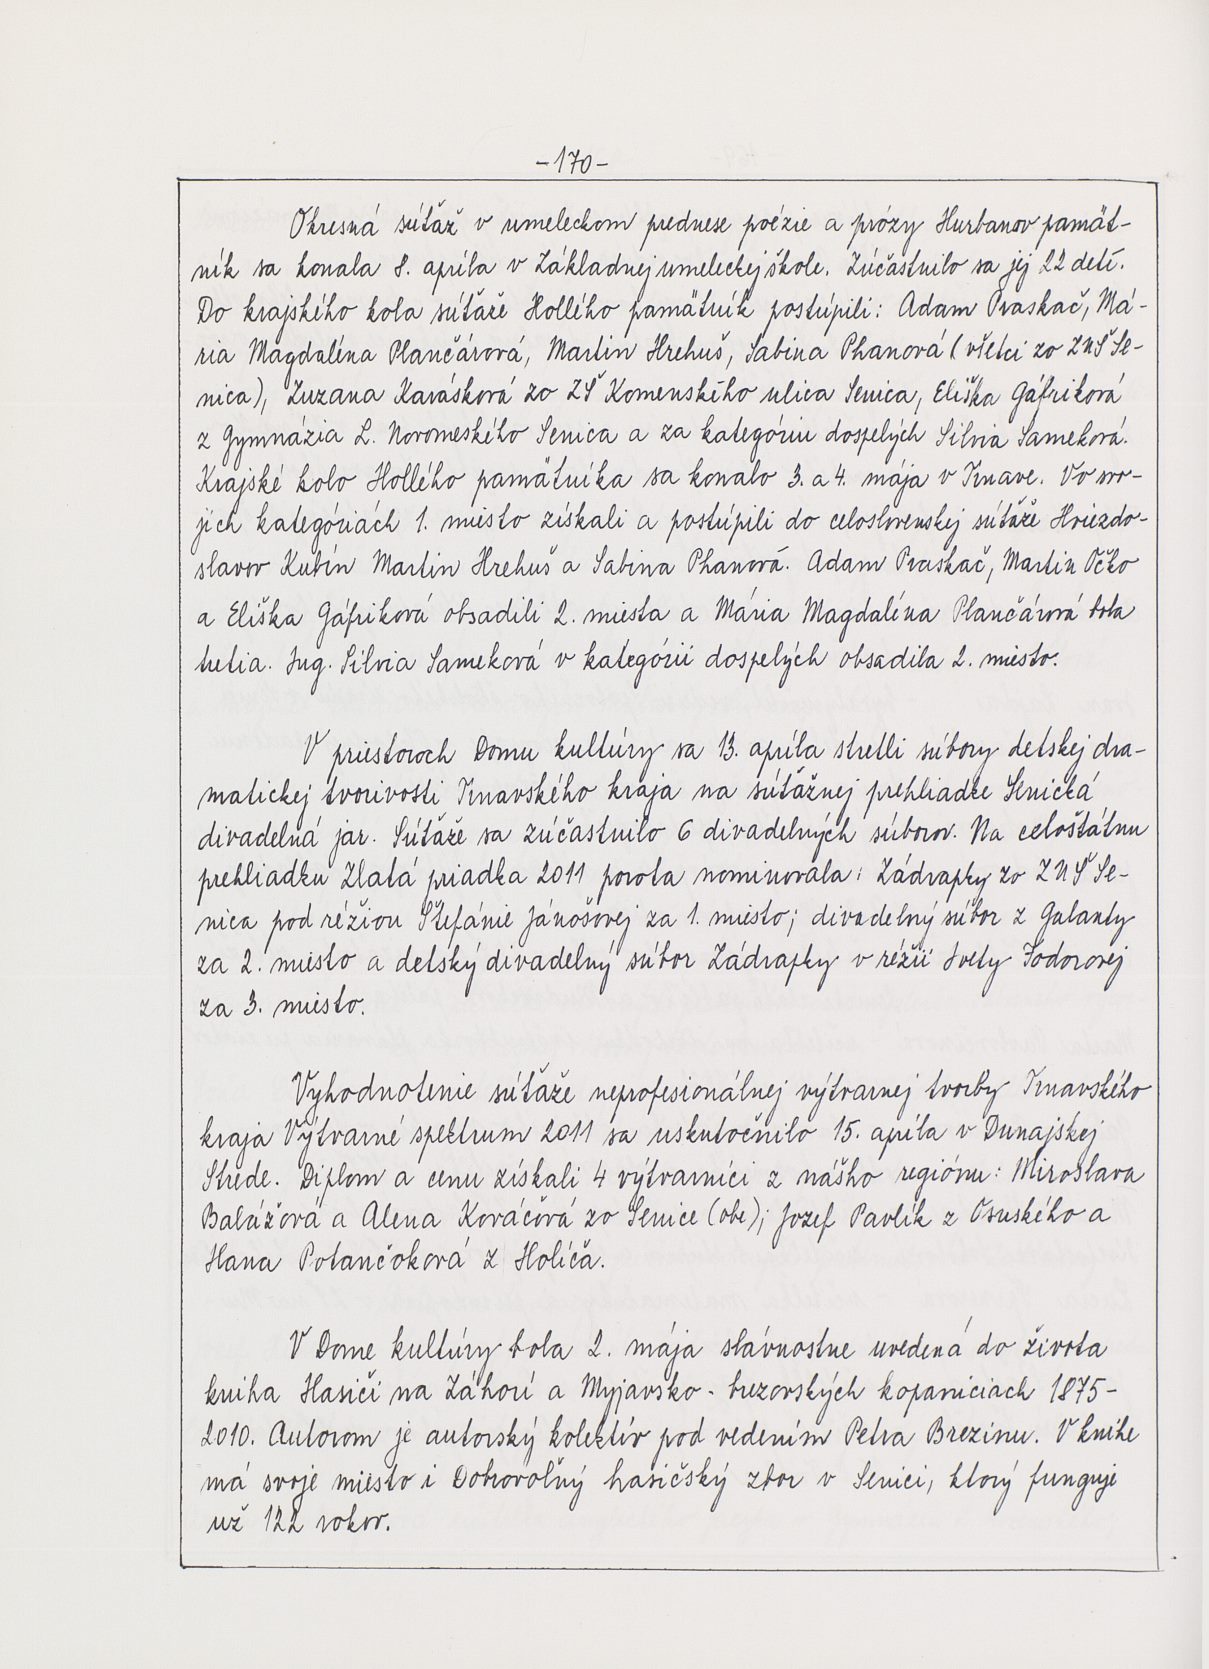 -170-
Okresná súťaž v umeleckom prednese poézie a prózy Hurbanov pamät-
ník sa konala 8. apríla v Základnej umeleckej škole. Zúčastnilo sa jej 22 detí.
Do krajského kola súťaže Hollého pamätník postúpili: Adam Praskač, Má-
ria Magdaléna Plančárová, Martin Hrehuš, Sabina Phanová (všetci zo ZUŠ Se-
nica), Zuzana Karásková zo ZŠ Komenského ulica Senica, Eliška Gáfriková
z Gymnázia L. Novomeského Senica a za kategóriu dospelých Silvia Sameková.
Krajské kolo Hollého pamätníka sa konalo 3. a 4. mája v Trnave. Vo svo-
jich kategóriách 1. miesto získali a postúpili do celoslovenskej súťaže Hviezdo-
slavov Kubín Martin Hrehuš a Sabina Phanová. Adam Praskač, Martin Očko
a Eliška Gáfriková obsadili 2. miesta a Mária Magdaléna Plančárová bola
tretia. Ing. Silvia Sameková v kategórii dospelých obsadila 2. miesto.
V priestoroch Domu kultúry sa 13. apríla stretli súbory detskej dra-
matickej tvorivosti Trnavského kraja na súťažnej prehliadke Senická
divadelná jar. Súťaže sa zúčastnilo 6 divadelných súborov. Na celoštátnu
prehliadku Zlatá priadka 2011 porota nominovala: Zádrapky zo ZUŠ Se-
nica pod réžiou Štefánie Jánošovej za 1. miesto; divadelný súbor z Galanty
za 2. miesto a detský divadelný súbor Zádrapky v réžii Ivety Fodorovej
za 3. miesto.
Vyhodnotenie súťaže neprofesionálnej výtvarnej tvorby Trnavského
kraja Výtvarné spektrum 2011 sa uskutočnilo 15. apríla v Dunajskej
Strede. Diplom a cenu získali 4 výtvarníci z nášho regiónu: Miroslava
Balážová a Alena Kováčová zo Senice (obe); Jozef Pavlík z Osuského a
Hana Potančoková z Holíča.
V Dome kultúry bola 2. mája slávnostne uvedená do života
kniha Hasiči na Záhorí a Myjavsko - brezovských kopaniciach 1875-
2010. Autorom je autorský kolektív pod vedením Petra Brezinu. V knihe
má svoje miesto i Dobrovoľný hasičský zbor v Senici, ktorý funguje
už 122 rokov.